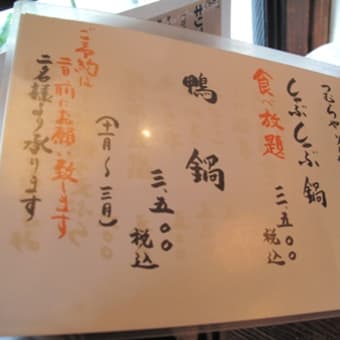 しゃぶしゃぶ鍋
食べ放題
三、五〇〇税込
鴨鍋
(十一月～三月)
三、五〇〇税込
ご予約は
前日にお願い致します
二名様より承ります